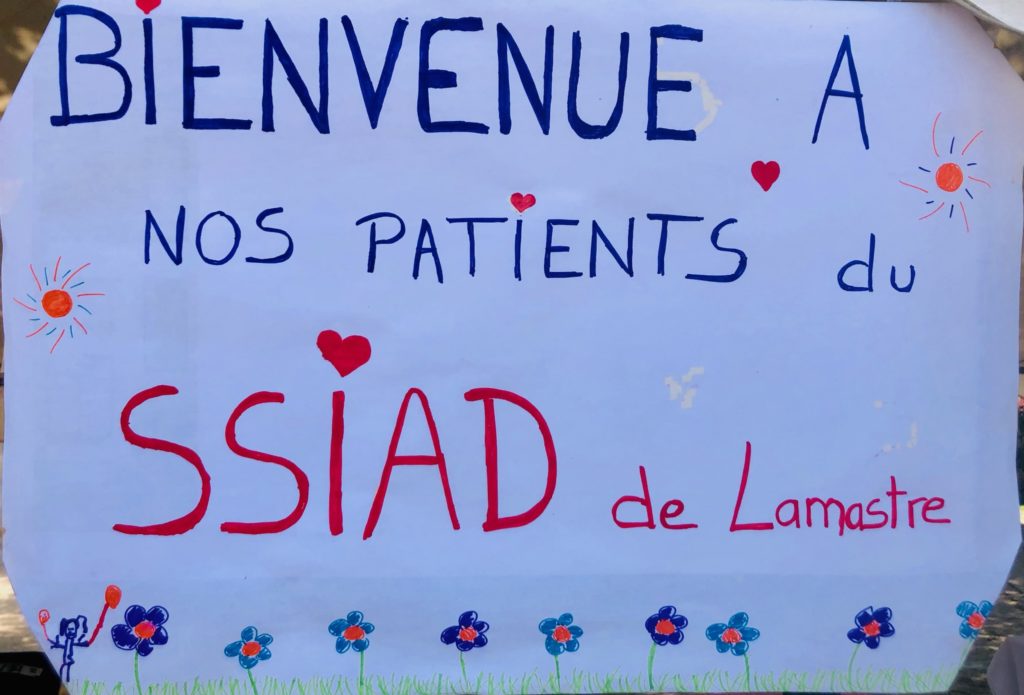 BIENVENUE A
NOS PATIENTS du
SSIAD de Lamastre